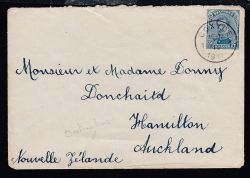 Monsieur et Madame Donny
Donchaitd
Hamilton
Auckland
Nouvelle Zélande